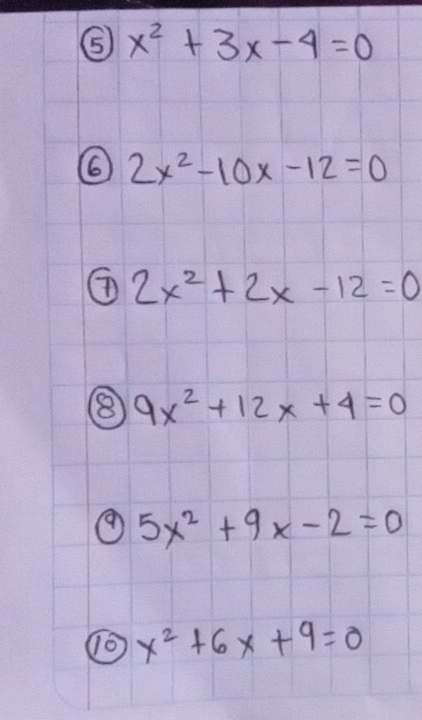 ⑤ x² + 3x - 4 = 0
⑥ 2x² - 10x - 12 = 0
⑦ 2x² + 2x - 12 = 0
⑧ 9x² + 12x + 4 = 0
⑨ 5x² + 9x - 2 = 0
⑩ x² + 6x + 9 = 0